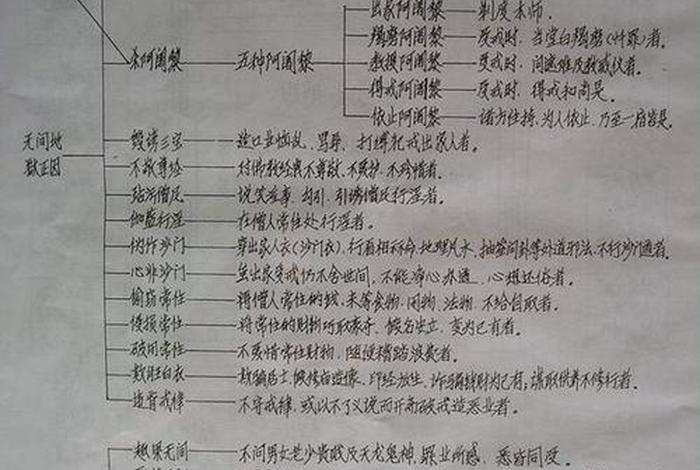 出家阿阇黎——剃度本师。
羯磨阿阇黎——受戒时，当堂白羯磨(忏罪)者。
杀阿阇黎——五种阿阇黎
教授阿阇黎——受戒时，问遮难及教威仪者。
得戒阿阇黎——受戒时，得戒和尚是。
依止阿阇黎——诸方住持，为人依止，乃至一宿皆是。
无间地狱正因
毁谤三宝——造口业恼乱，骂辱，打缚犯戒出家人者。
不敬尊经——对佛教经典不尊敬，不爱护，不珍惜者。
玷污僧尼——说笑淫事，勾引，引诱僧尼行淫者。
伽蓝行淫——在僧人常住处行淫者。
伪作沙门——穿出家人衣(沙门衣)，行看相算命，地理风水，抽签问卦等外道邪法，不行沙门道者。
心非沙门——虽出家受戒仍不舍世间，不能净心办道，心想还俗者。
偷窃常住——将僧人常住的钱，米等食物，用物，法物，不给自取者。
侵损常住——将常住的财物所取
破用常住——不爱惜常住财物，随便糟踏浪费者。
欺诳白衣——欺骗居士，假修白造像，印经放生，诈骗钱财为己有；谋取供养不修行者。
违背戒律——不守戒律，或以不了义说而开新破戒造恶业者。
趣果无间——不问男女老少贵贱及天龙鬼神，罪业所感，悉皆同受。